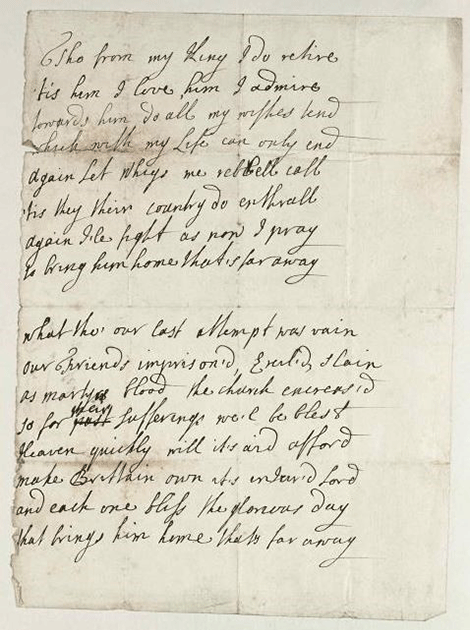 Tho from my King I do retire
'tis him I love him I admire
towards him do all my wishes tend
which with my Life can only end
again Let Whigs me rebbell call
'tis they their country do enthrall
again I'le fight as now I pray
to bring him home that's far away
what tho' our last attempt was vain
our Friends imprison'd, Exil'd, slain
as martyrs blood the church encreas'd
so for their sufferings we'l be blest
Heaven quickly will it's aid afford
make Brittain own its injur'd Lord
and each one bless the glorious day
that brings him home thats far away